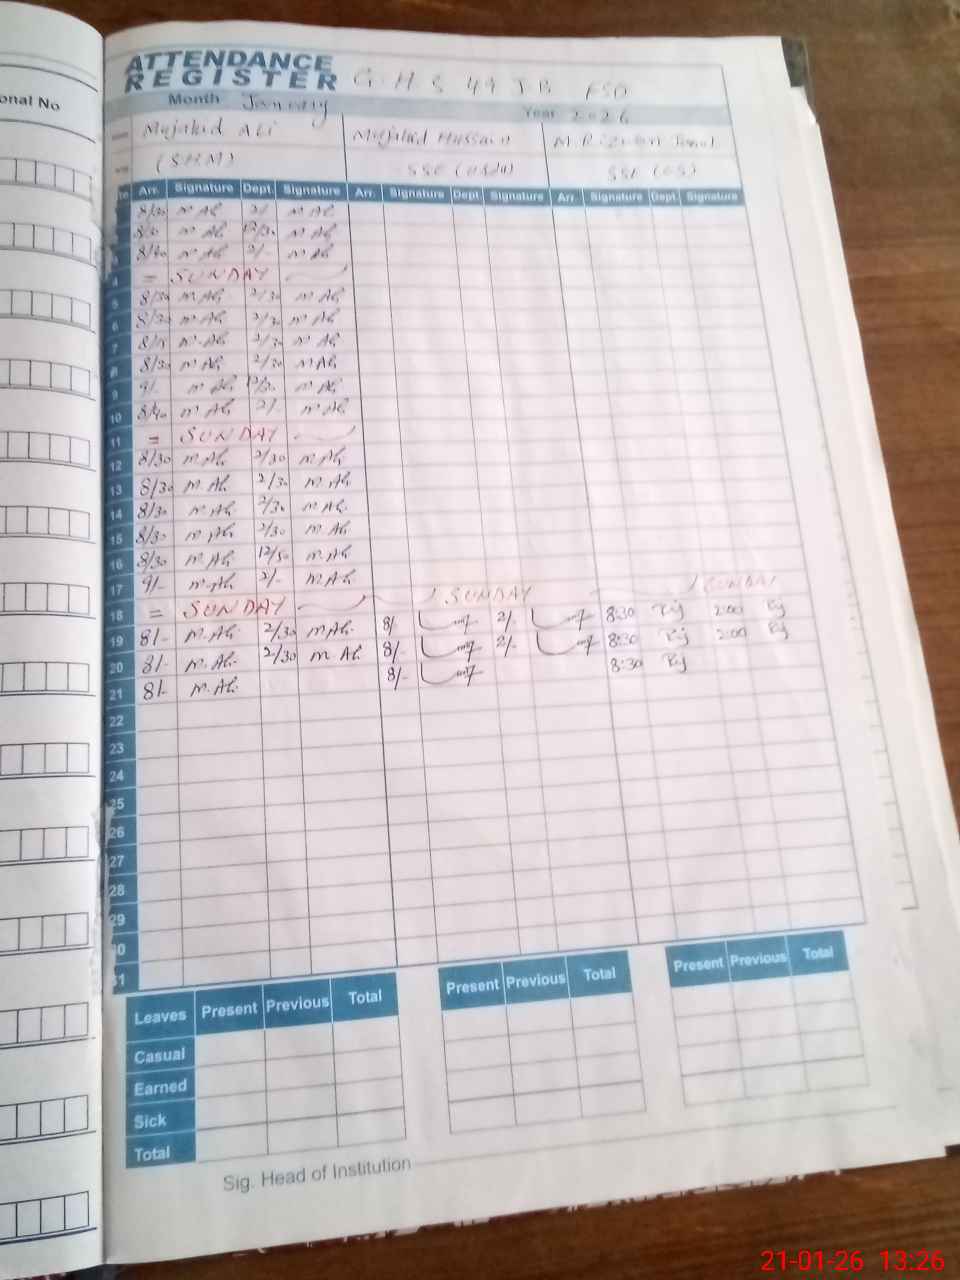 onal No
ATTENDANCE
REGISTER G.H.S 49 J.B FSD
Month January Year 2026
Mujahid Ali Mujahid Hussain M. Rizwan
(SHM) SSE SSE (CS)
Arr. Signature Dept. Signature Arr. Signature Dept Signature Arr. Signature Dept. Signature
8/30 M Ali 2/- M Ali
8/30 M Ali 12/30 M Ali
3 8/40 M Ali 2/- M Ali
4 = SUNDAY
5 8/30 M Ali 2/30 M Ali
6 8/30 M Ali 2/30 M Ali
7 8/15 M Ali 2/30 M Ali
8 8/30 M Ali 2/30 M Ali
9 9/- M Ali 12/30 M Ali
10 8/40 M Ali 2/- M Ali
11 = SUNDAY
12 8/30 M Ali 2/30 M Ali
13 8/30 M Ali 2/30 M Ali
14 8/30 M Ali 2/30 M Ali
15 8/30 M Ali 2/30 M Ali
16 8/30 M Ali 12/50 M Ali
17 9/- M Ali 2/- M Ali
18 = SUNDAY SUNDAY SUNDAY
19 8/- M.Ali 2/30 M Ali 8/- 2/- 8:30 2:00
20 8/- M.Ali 2/30 M Ali 8/- 2/- 8:30 2:00
21 8/- M.Ali 8/- 8:30
22
23
24
25
26
27
28
29
30
31
Leaves Present Previous Total Present Previous Total Present Previous Total
Casual
Earned
Sick
Total
Sig. Head of Institution
21-01-26 13:26